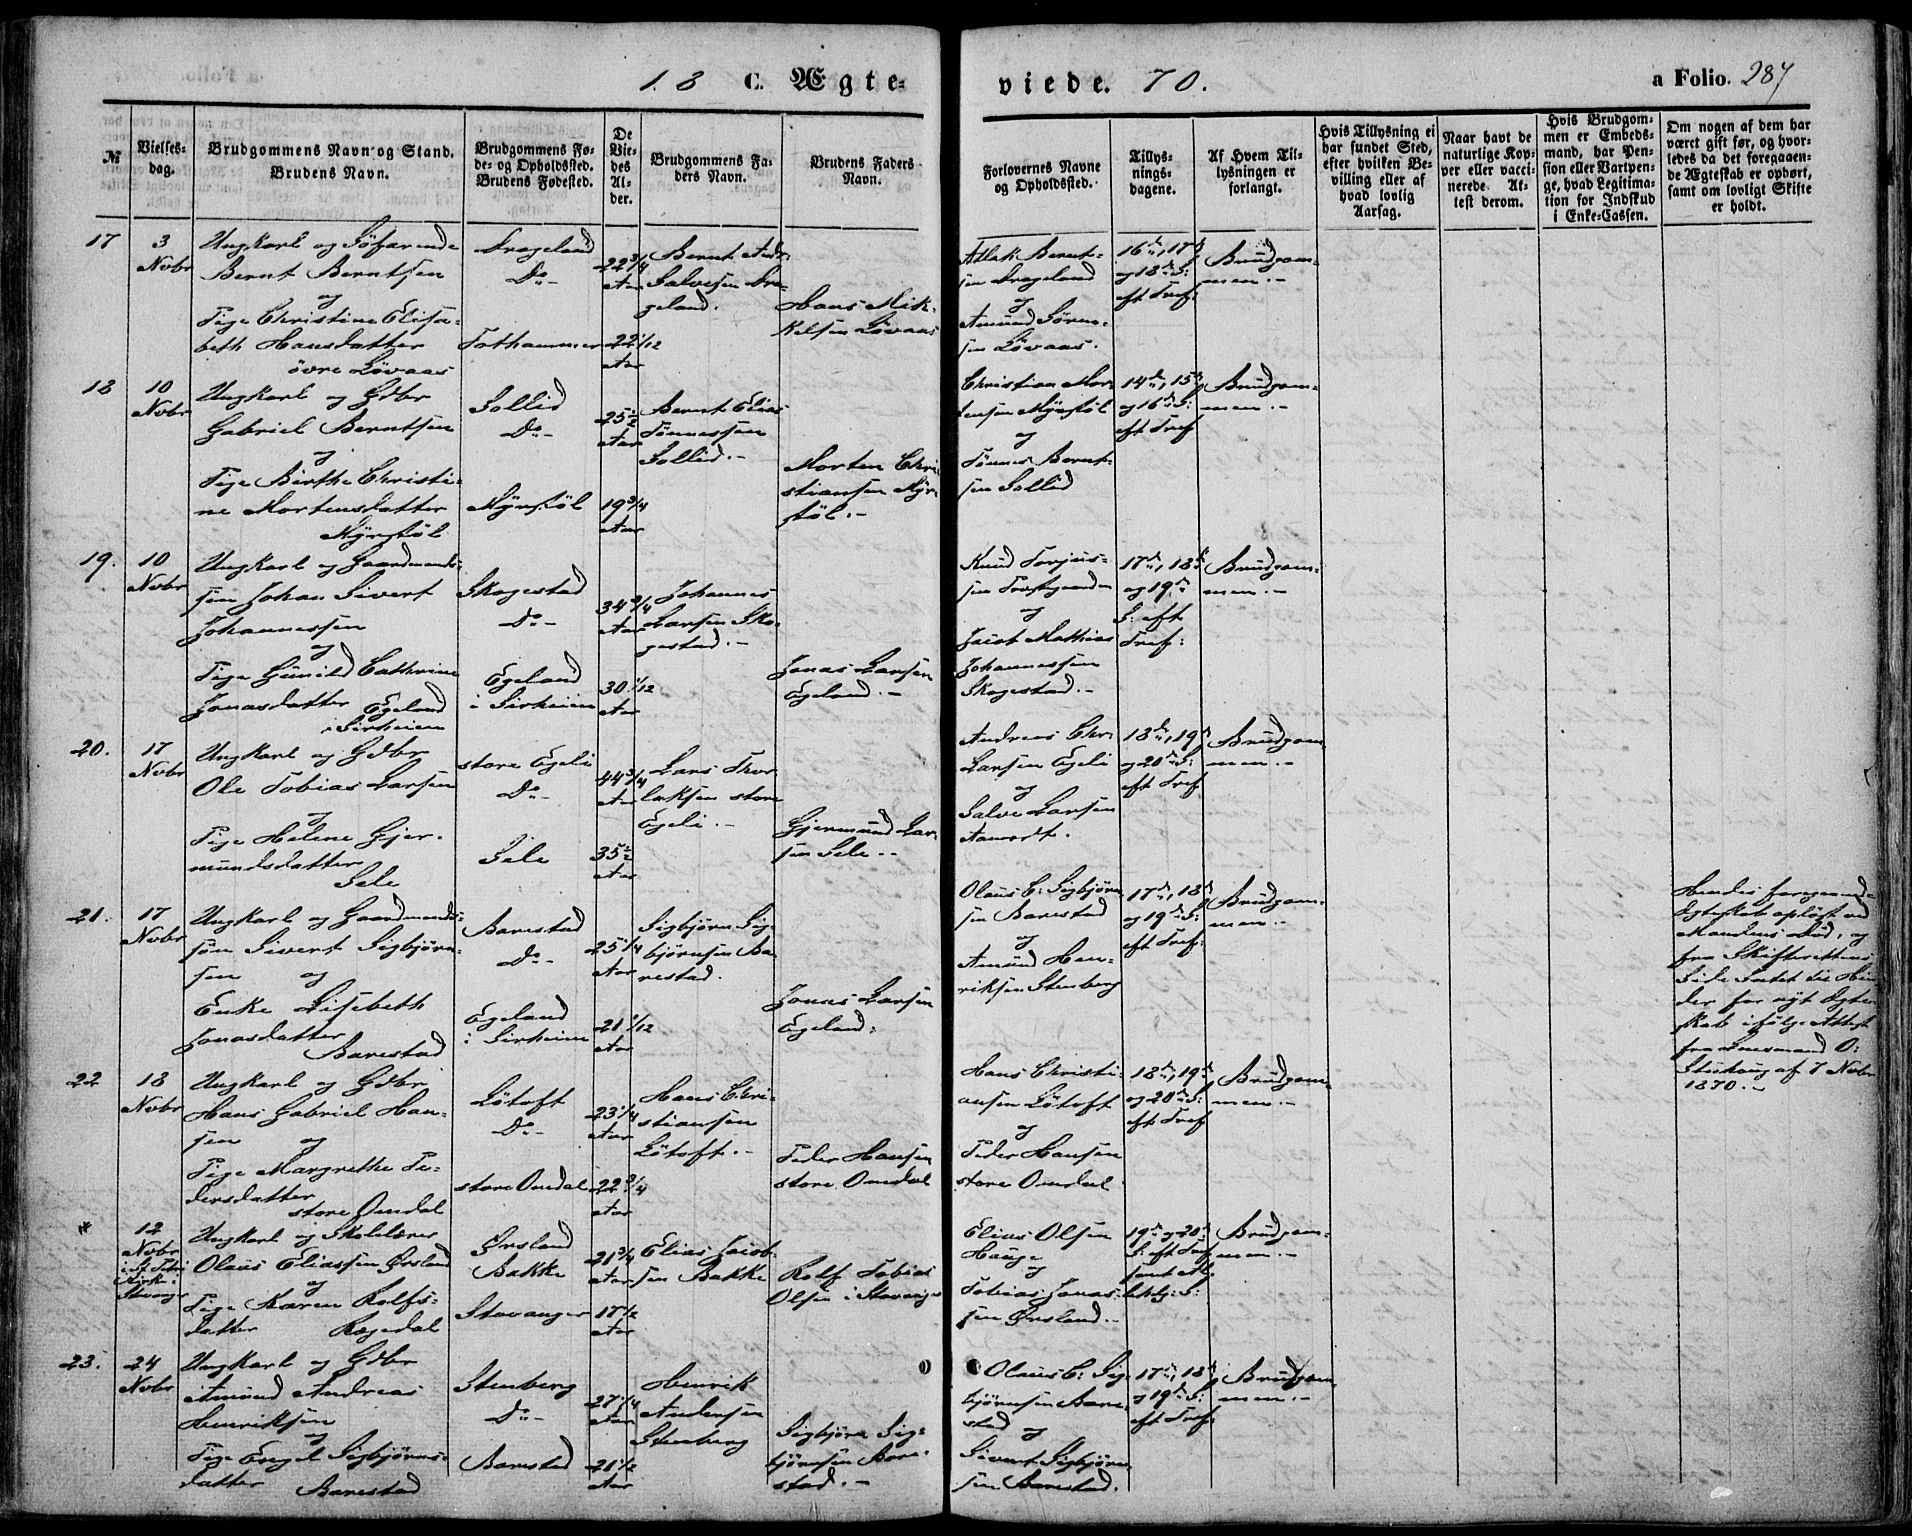 18 C. Ægte-
viede. 70.
a Folio. 287
№
Vielses-
dag.
Brudgommens Navn og Stand.
Brudens Navn.
Brudgommens Fø-
de- og Opholdssted.
Brudens Fødested.
De
Vie-
des
Al-
der.
Brudgommens Fa-
ders Navn.
Brudens Faders
Navn.
Forlovernes Navne
og Opholdssted.
Tillys-
nings-
dagene.
Af Hvem Til-
lysningen er
forlangt.
Hvis Tillysning ei
har fundet Sted,
efter hvilken Be-
villing eller af
hvad lovlig
Aarsag.
Naar havt de
naturlige Kop-
per eller vacci-
nerede. At-
test derom.
Hvis Brudgom-
men er Embeds-
mand, har Pen-
sion eller Vartpen-
ge, hvad Legitima-
tion for Indskud
i Enke-Cassen.
Om nogen af dem har
været gift før, og hvor-
ledes da det foregaaen-
de Ægteskab er ophørt,
samt om lovligt Skifte
er holdt.
17
3
Novbr
Ungkarl og Söfarende
Bernt Berntsen
og
Pige Christine Elisa-
beth Hansdatter
övre Lövaas
Drageland
Do -
Fothammer
22 3/4
Aar
22 1/12
Aar
Bernt Andr:
Salvesen Dra-
geland.
Hans Mik-
kelsen Lövaas
Atlak Bernt-
sen Drageland
og
Amund Sörens-
sen Lövaas.
16de, 17de
og 18de S:
eft Tref:
Brudgom-
men. -
18
10
Novbr
Ungkarl og Gdbr
Gabriel Berntsen
og
Pige Birthe Christi-
ne Mortensdatter
Myrstöl
Sollid
Do -
Myrstöl
25 1/2
Aar
19 3/4
Aar
Bernt Elias
Tönnessen
Sollid. -
Morten Chri-
stiansen Myr-
stöl. -
Christian Mor-
tensen Myrstöl
og
Tönnes Bernt-
sen Sollid
14de, 15de
og 16de S:
eft Tref
Brudgom-
men. -
19.
10
Novbr
Ungkarl og Gaardmands-
sön Johan Sivert
Johannessen
og
Pige Gunild Cathrine
Jonasdatter Egeland
i Sirheien
Skogestad
Do -
Egeland
i Sirheien
34 3/4
Aar
30 1/12
Aar
Johannes
Larsen Sko-
gestad. -
Jonas Larsen
Egeland. -
Knud Torjus-
sen
og
Jacob Mathias
Johannessen
Skogestad. -
17de, 18de
og 19de
S: eft
Tref:
Brudgom-
men. -
20.
17
Novbr
Ungkarl og Gdbr
Ole Tobias Larsen
og
Pige Helene Gjer-
mundsdatter
Sele
store Egeli
Do -
Sele
44 3/4
Aar
35 1/2
Aar
Lars Thor-
laksen store
Egeli. -
Gjermund Lar-
sen Sele. -
Andreas Chr:
Larsen Egeli
og
Salve Larsen
Aamodt.
18de, 19de
og 20de S:
eft Tref
Brudgom-
men. -
21.
17
Novbr
Ungkarl og Gaardmands-
sön Sivert Sigbjörn-
sen og
Enke Lisebeth
Jonasdatter
Barestad
Barestad
Do -
Egeland
i Sirheien
25 1/4
Aar
21 1/12
Aar
Sigbjörn Sig-
björnsen Ba-
restad.
Jonas Larsen
Egeland.
Olaus B: Sigbjörn-
sen Barestad
og
Amund Hen-
riksen Stenberg
17de, 18de
og 19de S:
eft Tref:
Brudgom-
men. -
Hendes foregaaende
Ægteskab oplöst ved
Mandens Död, og
fra Skifterettens
Side Intet til Hin-
der for nyt Ægte-
skab ifölge Attest
fra Lensmand O:
af 7 Novbr
1870. -
22
18
Novbr
Ungkarl og Gdbr
Hans Gabriel Han-
sen og
Pige Margrethe Pe-
dersdatter
store Omdal
Lötoft
Do -
store Omdal
23 1/4
Aar
22 3/4
Aar
Hans Chri-
stiansen
Lötoft. -
Peder Hansen
store Omdal
Hans Christi-
ansen Lötoft
og
Peder Hansen
store Omdal
18de, 19de
og 20de S:
eft Tref
Brudgom-
men. -
*
12
Novbr
i St. Petri
Kirke i
Stavanger
Ungkarl og Skolelærer
Olaus Eliassen Ørsland
og
Pige Karen Rolfs-
datter Rægedal
Ørsland
Bakke
Stavanger
21 3/4
Aar
17 1/2
Aar
Elias Jacob-
sen Bakke
Rolf Tobias
Olsen i Stavanger
Elias Olsen
Hauge
og
Tobias Jonas-
sen Ørsland. -
19de og 20de
S: eft Tref
Brudgom-
men. -
23.
24
Novbr
Ungkarl og Gdbr
Amund Andreas
Henriksen
og
Pige Engel Sigbjörns-
datter Barestad
Stenberg
Do -
Barestad
27 1/4
Aar
21 1/2
Aar
Henrik
Andersen
Stenberg
Sigbjörn Sig-
björnsen Bare-
stad. -
Olaus B: Sig-
björnsen Bare-
stad og
Sivert Sigbjörn-
sen Barestad.
17de, 18de
og 19de S:
eft Tref:
Brudgom-
men. -